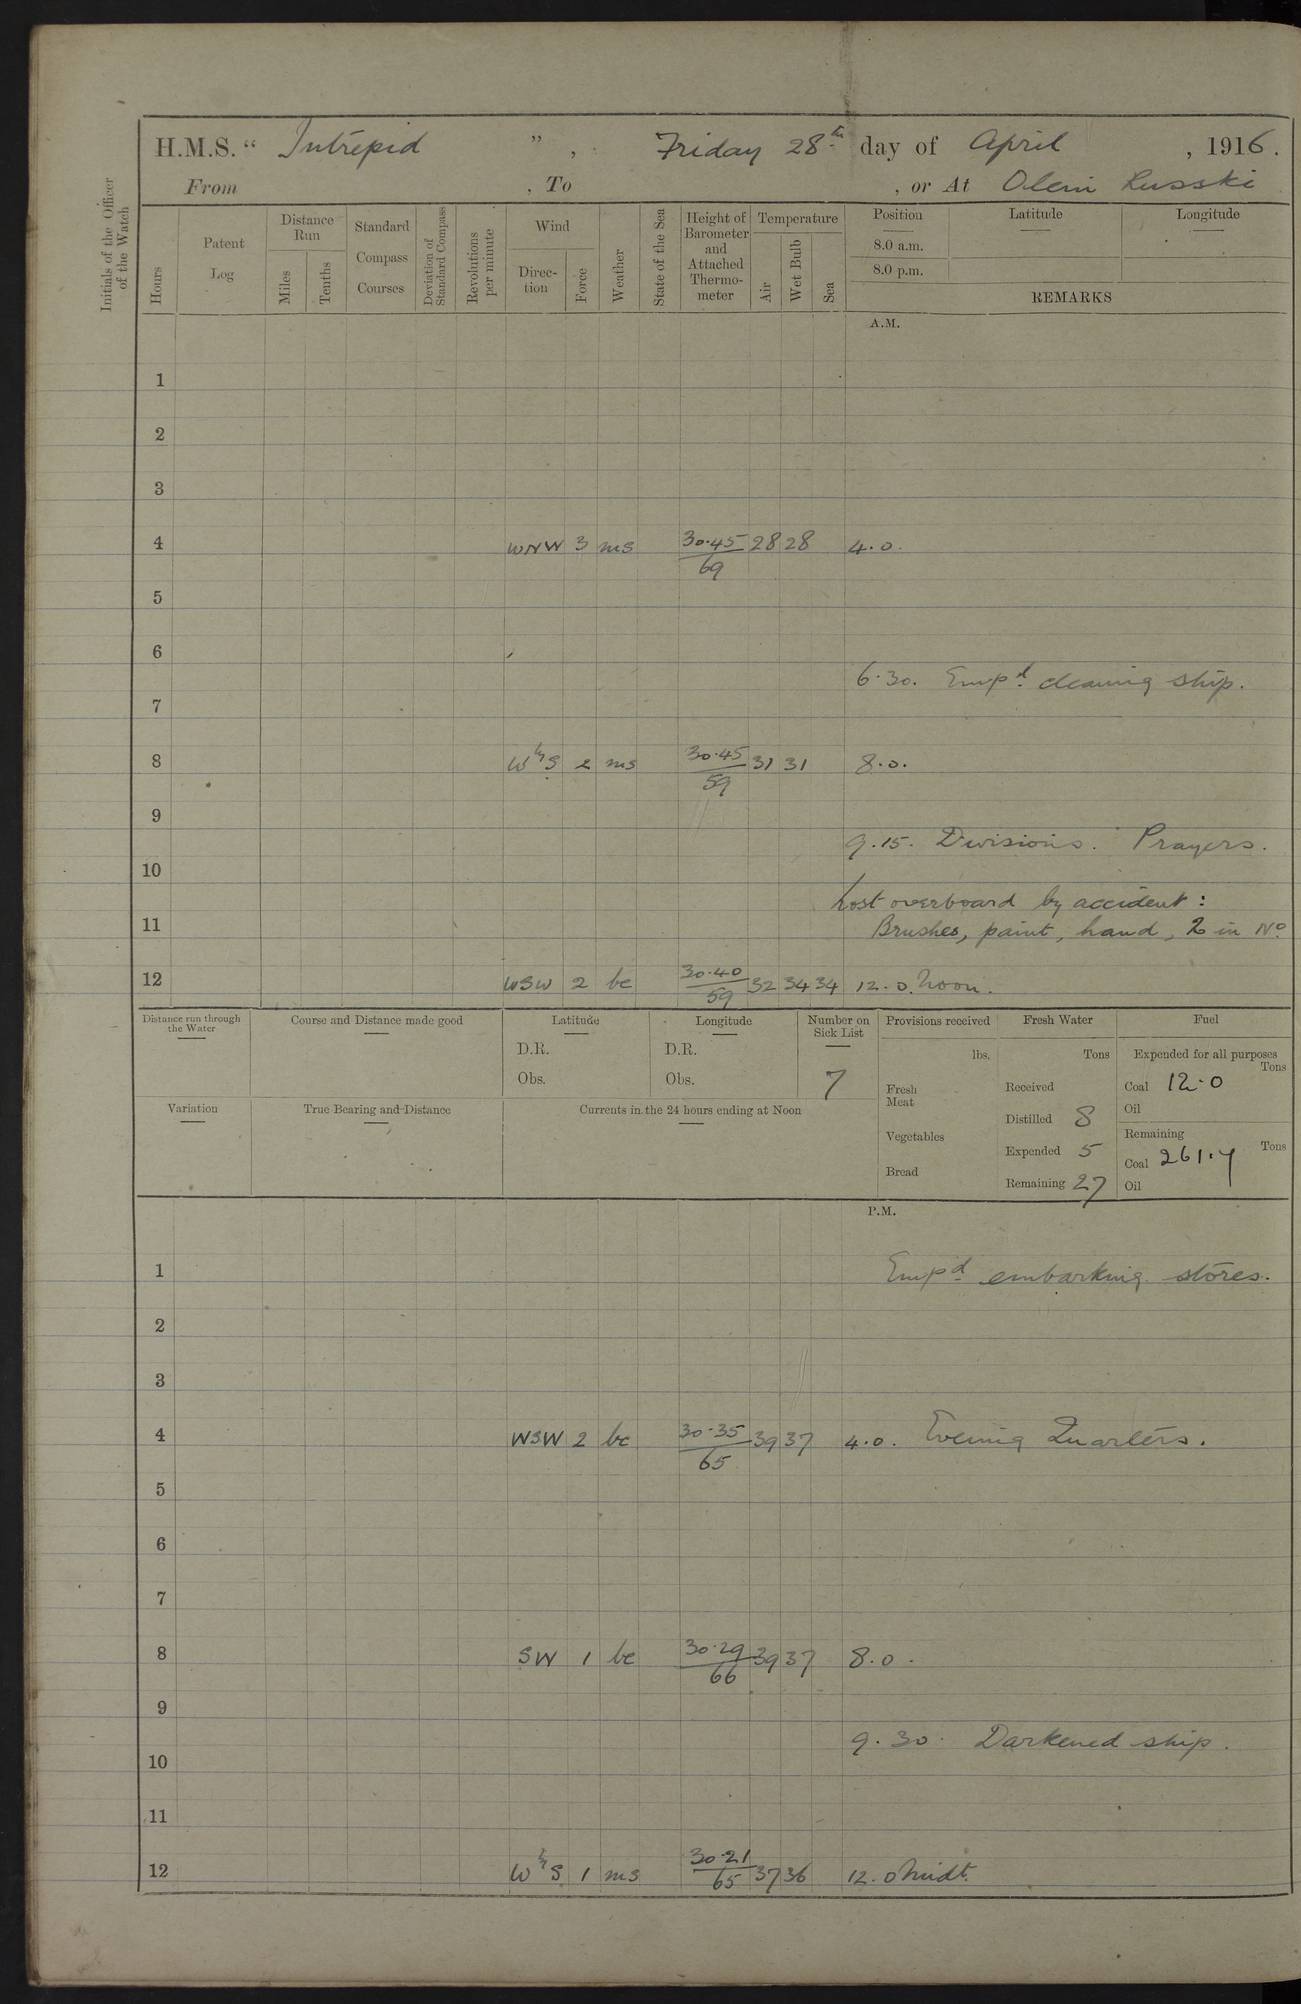 H.M.S. “ Intrepid ” , Friday 28th day of April , 1916.
From , To , or At Oleni Russki
Initials of the Officer of the Watch
Hours
Patent Log
Distance Run
Miles
Tenths
Standard Compass Courses
Deviation of Standard Compass
Revolutions per minute
Wind
Direc-tion
Force
Weather
State of the Sea
Height of Barometer and Attached Thermo-meter
Temperature
Air
Wet Bulb
Sea
Position
Latitude
Longitude
8.0 a.m.
8.0 p.m.
REMARKS
A.M.
1
2
3
4 WNW 3 ms 30.45/69 28 28 4.0.
5
6
6.30. Empd cleaning ship.
7
8 W by S 2 ms 30.45/59 31 31 8.0.
9
9.15. Divisions. Prayers.
10
Lost overboard by accident :
11 Brushes, paint, hand, 2 in No
12 WSW 2 bc 30.40/59 32 34 34 12.0. Noon.
Distance run through the Water
Course and Distance made good
Latitude
D.R.
Obs.
Longitude
D.R.
Obs.
Number on Sick List
7
Provisions received
lbs.
Fresh Meat
Vegetables
Bread
Fresh Water
Tons
Received
Distilled 8
Expended 5
Remaining 27
Fuel
Expended for all purposes
Tons
Coal 12.0
Oil
Remaining
Tons
Coal 261.7
Oil
Variation
True Bearing and Distance
Currents in the 24 hours ending at Noon
P.M.
1 Empd embarking stores.
2
3
4 WSW 2 bc 30.35/65 39 37 4.0. Evening Quarters.
5
6
7
8 SW 1 bc 30.29/66 39 37 8.0.
9
9.30. Darkened ship.
10
11
12 W by S 1 ms 30.21/65 37 36 12.0 Midt.